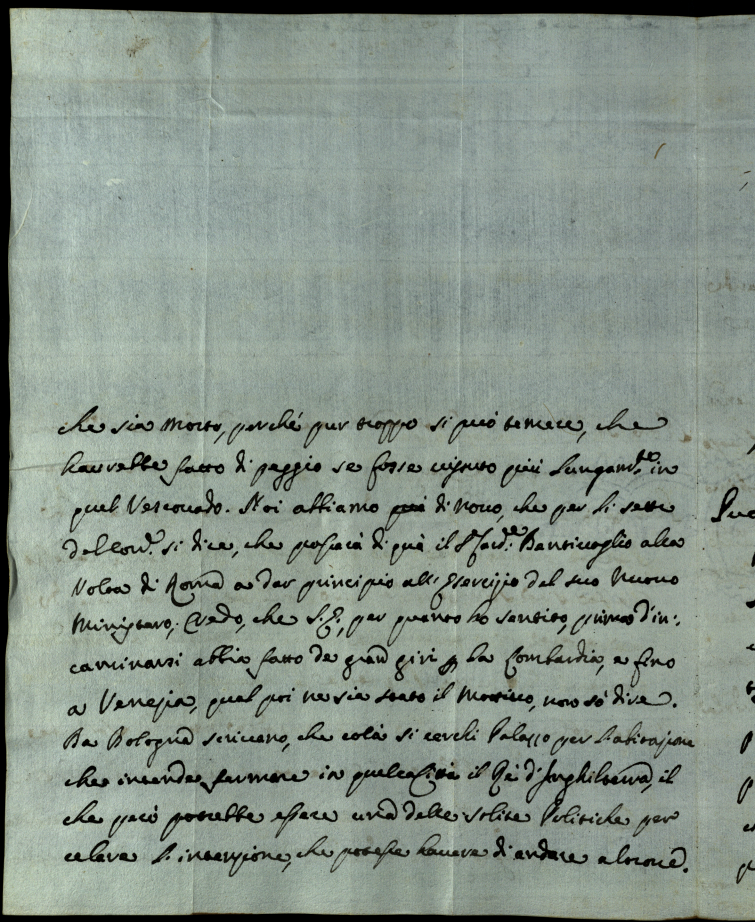 che sia morto, perché pur troppo si può temere, che
havrebbe fatto di peggio se fosse vissuto più lungam.te in
quel Vescovado. Noi abbiamo quà di novo, che per li sette
del corr.e si dice, che passarà di quà il S.r Card.le Bentivoglio alla
Volta di Roma a dar principio all'Esercizio del suo nuovo
Ministero; Credo, che S. E., per quanto ho sentito, prima d'in:
caminarsi abbia fatto de gran giri p la Lombardia, e fino
a Venezia, qual poi ne sia stato il Motivo, non sò dire.
Da Bologna scrivano, che colà si cerchi Palazzo per l'abitazione
che intende fermare in quella Città il Rè d'Inghilterra, il
che però potrebbe essere una delle solite Politiche per
celare l'intenzione, che potesse havere di andare altrove.